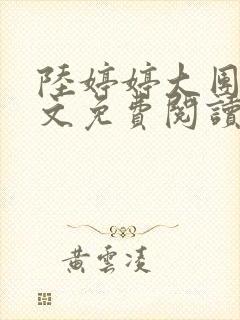 陸婷婷大團
文免費閱讀
黃雲凌